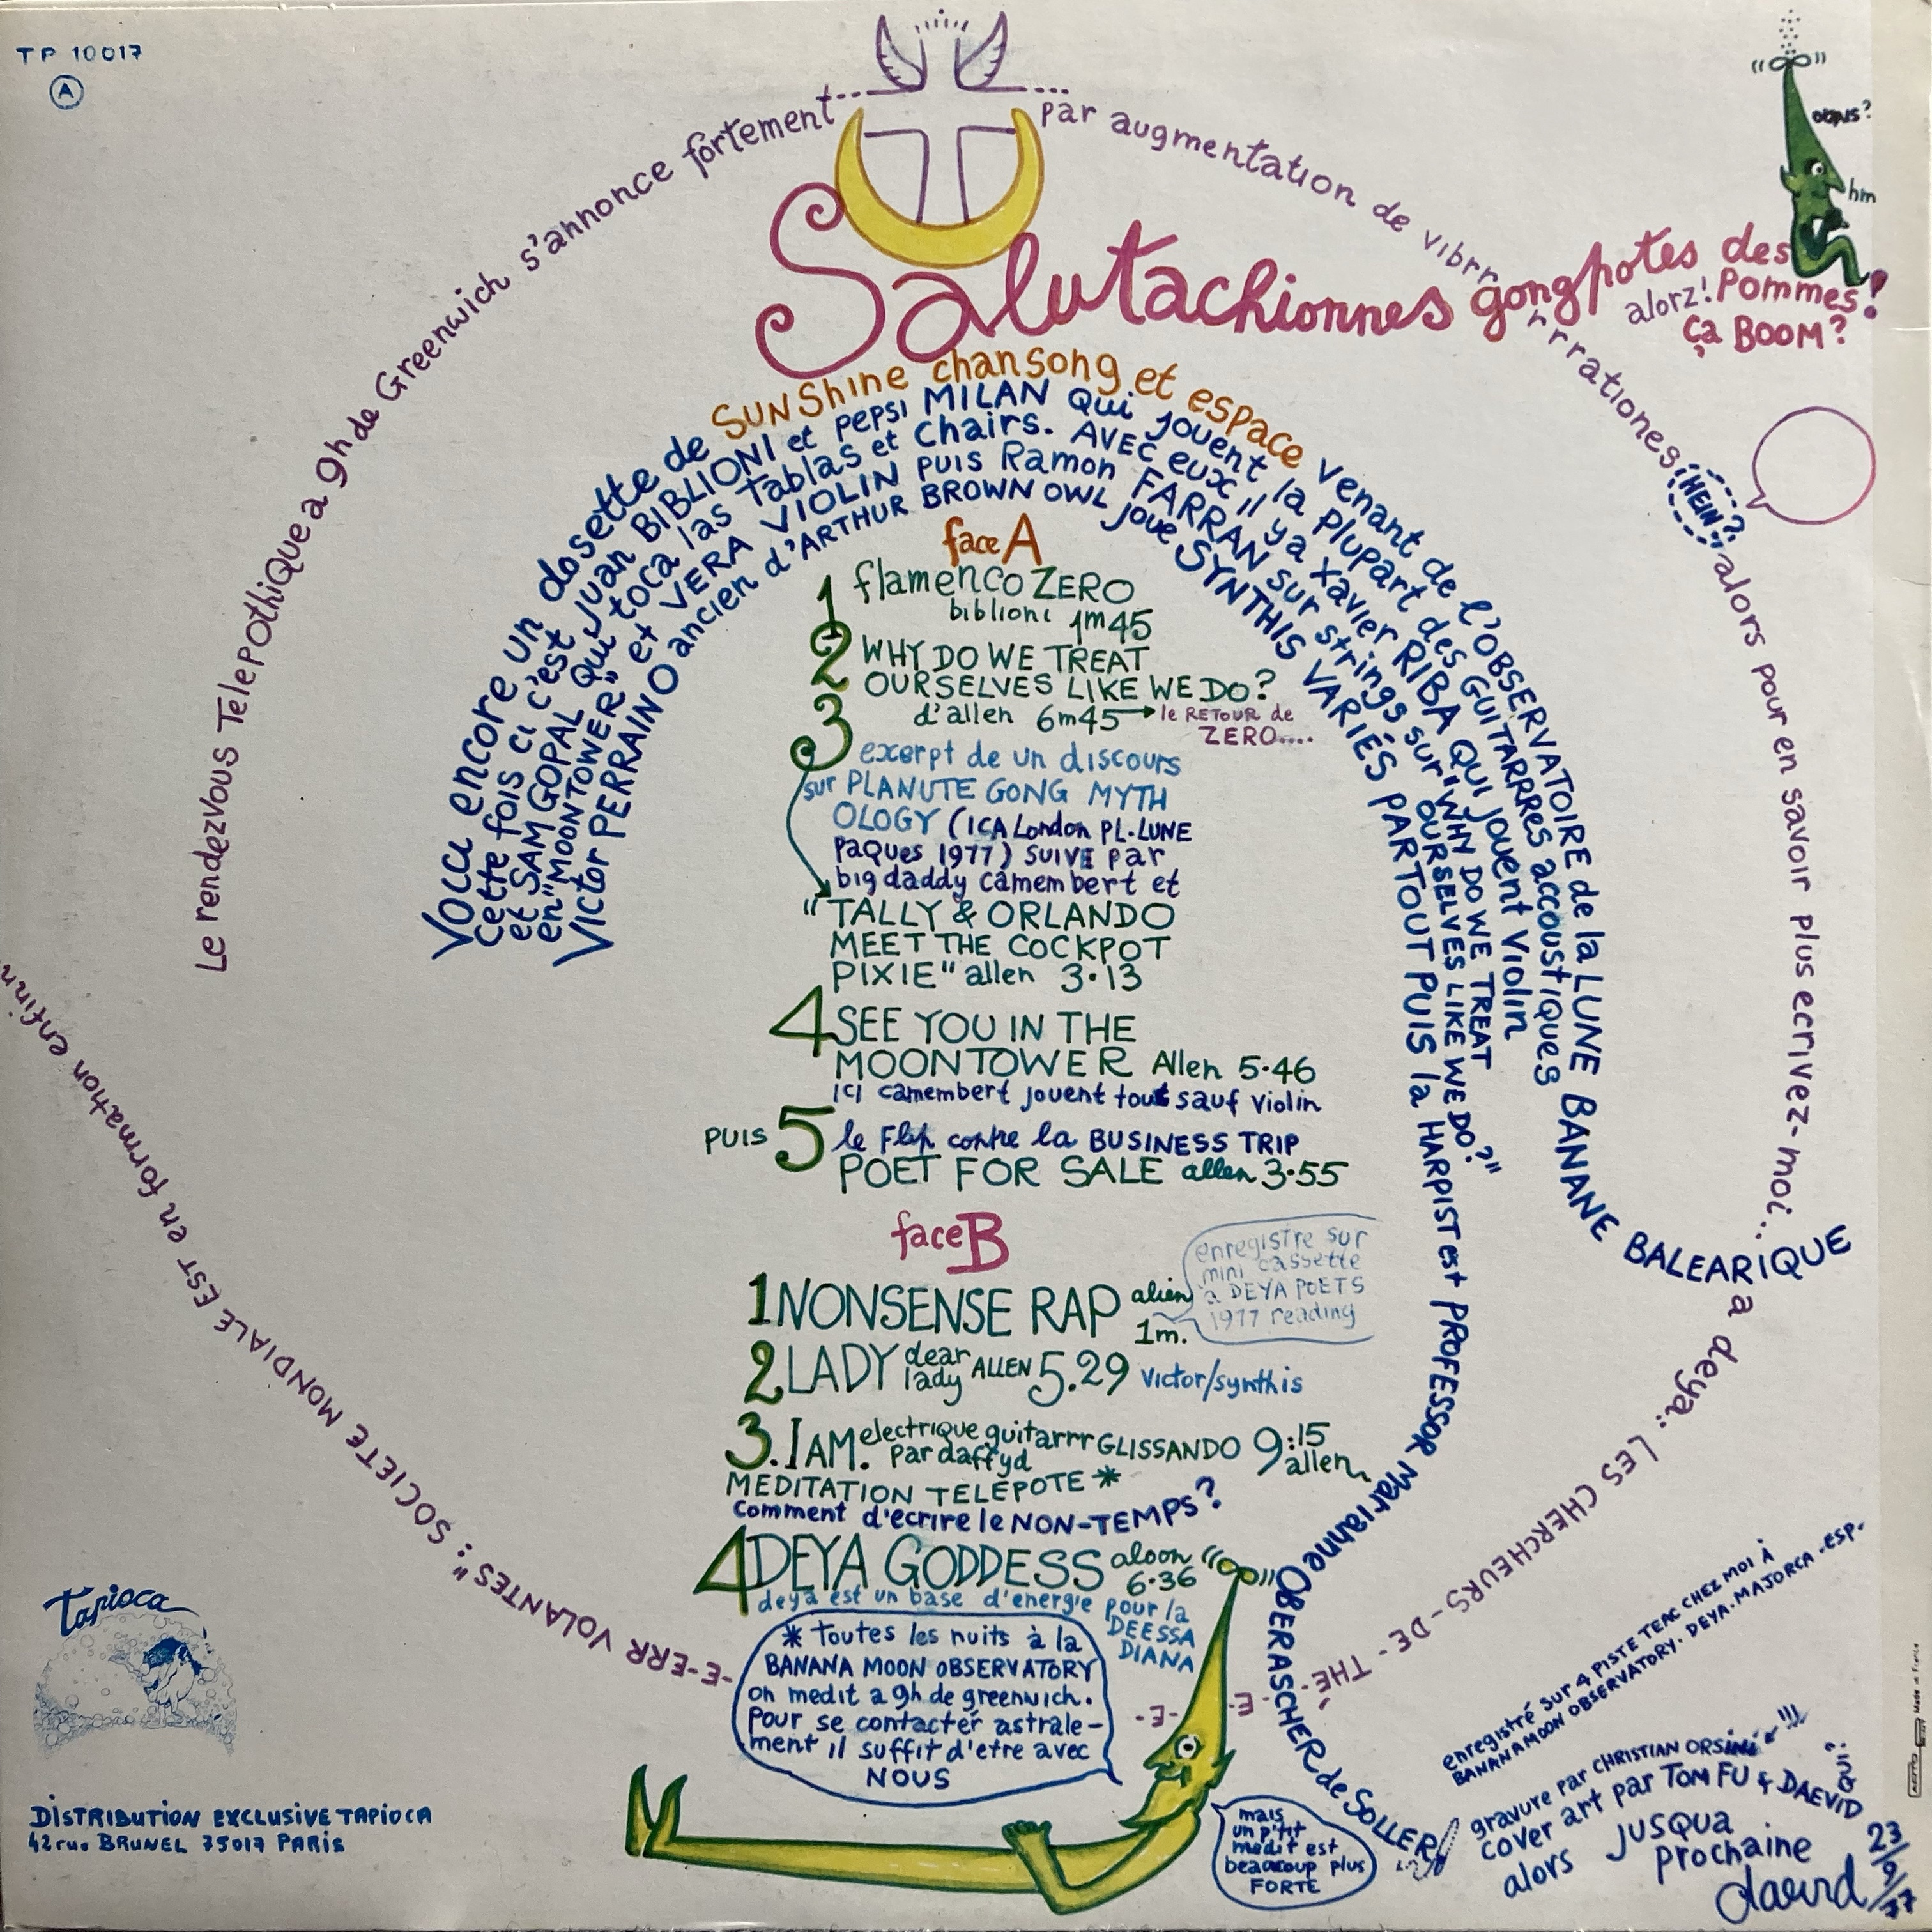 TP 10017
A
Le rendezvous Telepothique a 9h de Greenwich s'annonce fortement... ...par augmentation de vibrr rrrationes (HEIN?) alors pour en savoir plus ecrivez-moi... a deya.: LES CHERCHEURS-DE-THE-E-E-E-E-E-ERR VOLANTES": SOCIETE MONDIALE EST en formation enfinn
ouais?
hm
Salutachionnes gongpotes des
Pommes!
alorz!
ça BOOM?
Voci encore un dosette de SUNShine chansong et espace venant de l'OBSERVATOIRE de la LUNE BANANE BALEARIQUE
Cette fois ci c'est Juan BIBLIONI et pepsi MILAN qui jouent la plupart des GUITARRRES accoustiques
et SAM GOPAL qui toca las Tablas et Chairs. AVEC eux il y a Xavier RIBA qui jouent violin
en "MOONTOWER" et VERA VIOLIN puis Ramon FARRAN sur strings sur "WHY DO WE TREAT
OURSELVES LIKE WE DO?"
Victor PERRAINO ancien d'ARTHUR BROWN OWL joue SYNTHIS VARIÉS PARTOUT PUIS la HARPIST est PROFESSOR Marianne OBERASCHER de SOLLER
face A
1 flamenco ZERO
biblioni 1m45
2 WHY DO WE TREAT
OURSELVES LIKE WE DO?
d'allen 6m45 → le RETOUR de
ZERO....
3 excerpt de un discours
sur PLANUTE GONG MYTH
OLOGY (ICA London PL.LUNE
paques 1977) SUIVE par
big daddy camembert et
"TALLY & ORLANDO
MEET THE COCKPOT
PIXIE" allen 3.13
4 SEE YOU IN THE
MOONTOWER Allen 5.46
ici camembert jouent tout sauf violin
PUIS 5 le Flip contre la BUSINESS TRIP
POET FOR SALE allen 3.55
face B
1 NONSENSE RAP alien
1m.
enregistre sur
mini cassette
a DEYA POETS
1977 reading
2 LADY dear
lady ALLEN 5.29 Victor/synthis
3. I AM. electrique guitarrr GLISSANDO 9:15
par daffyd allen
MEDITATION TELEPOTE *
Comment d'ecrire le NON-TEMPS?
4 DEYA GODDESS aloon
6.36
deya est un base d'energie pour la
DEESSA
DIANA
* Toutes les nuits à la
BANANA MOON OBSERVATORY
on medit a 9h de greenwich.
pour se contacter astrale-
ment il suffit d'etre avec
NOUS
mais
un p'tit
medit est
beaucoup plus
FORTE
Tapioca
DISTRIBUTION EXCLUSIVE TAPIOCA
42 rue BRUNEL 75017 PARIS
enregistré sur 4 PISTE TEAC CHEZ MOI À
BANANAMOON OBSERVATORY. DEYA. MAJORCA .ESP.
gravure par CHRISTIAN ORSini ← !!!
cover art par TOM FU & DAEVID
alors jusqua
prochaine
daevid
23/9/77
Made in France